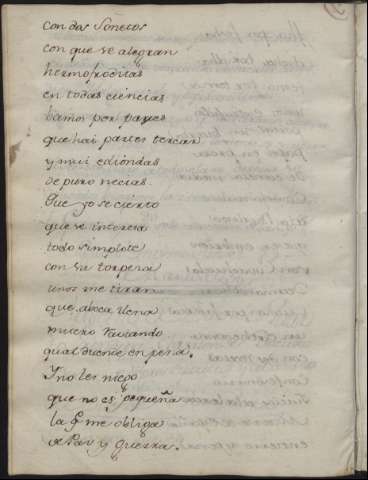 con dos Sonetos
con que se alegran
hermofroditas
en todas ciencias
bamos por partes
que hai partes tercas
y mui ediondas
de puro necias.
Que yo se cierto
que se interesa
todo simplote
con su torpeza
unos me tiran
que, a boca llena
muero rauiando
qual duende en pena.
Y no les niego
que no es pequeña
la q.e me obliga
a Paz y Guerra.